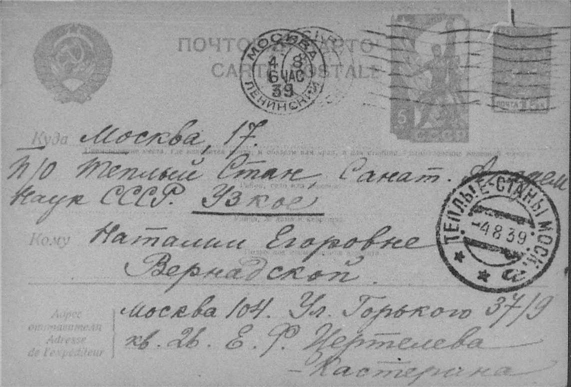 ПОЧТОВАЯ КАРТОЧКА
CARTE POSTALE
МОСКВА
4 8
6 ЧАС
39
ЛЕНИНСКИЙ
5
СССР
ПОЧТА 15
Куда Москва, 17.
п/о Теплый Стан Санат. Академ
Наук СССР. Узкое
ТЕПЛЫЕ-СТАНЫ МОСК.
-4.8.39
Кому Наталии Егоровне
Вернадской
Адрес
отправителя
Adresse
de l'expéditeur
Москва 104. Ул. Горького 37/9
кв. 26. Е. Ф. Цертелева
-Кастерина